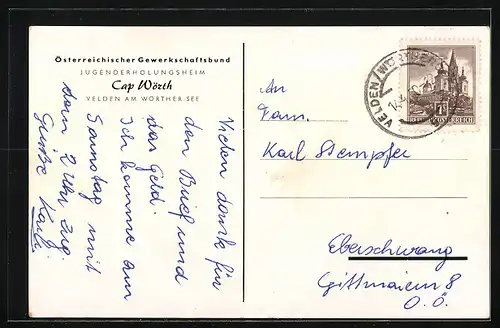 Österreichischer Gewerkschaftsbund
JUGENDERHOLUNGSHEIM
Cap Wörth
VELDEN AM WÖRTHER SEE
Vielen dank für
den Brief und
das Geld.
Ich komme am
Samstag mit
dem 2 Uhr Zug.
Grüße Karli
An
Fam.
Karl Stempfer
Eberschwang
Gittmaiern 8
O.Ö.
VELDEN/WÖRTHER
REPUBLIK ÖSTERREICH